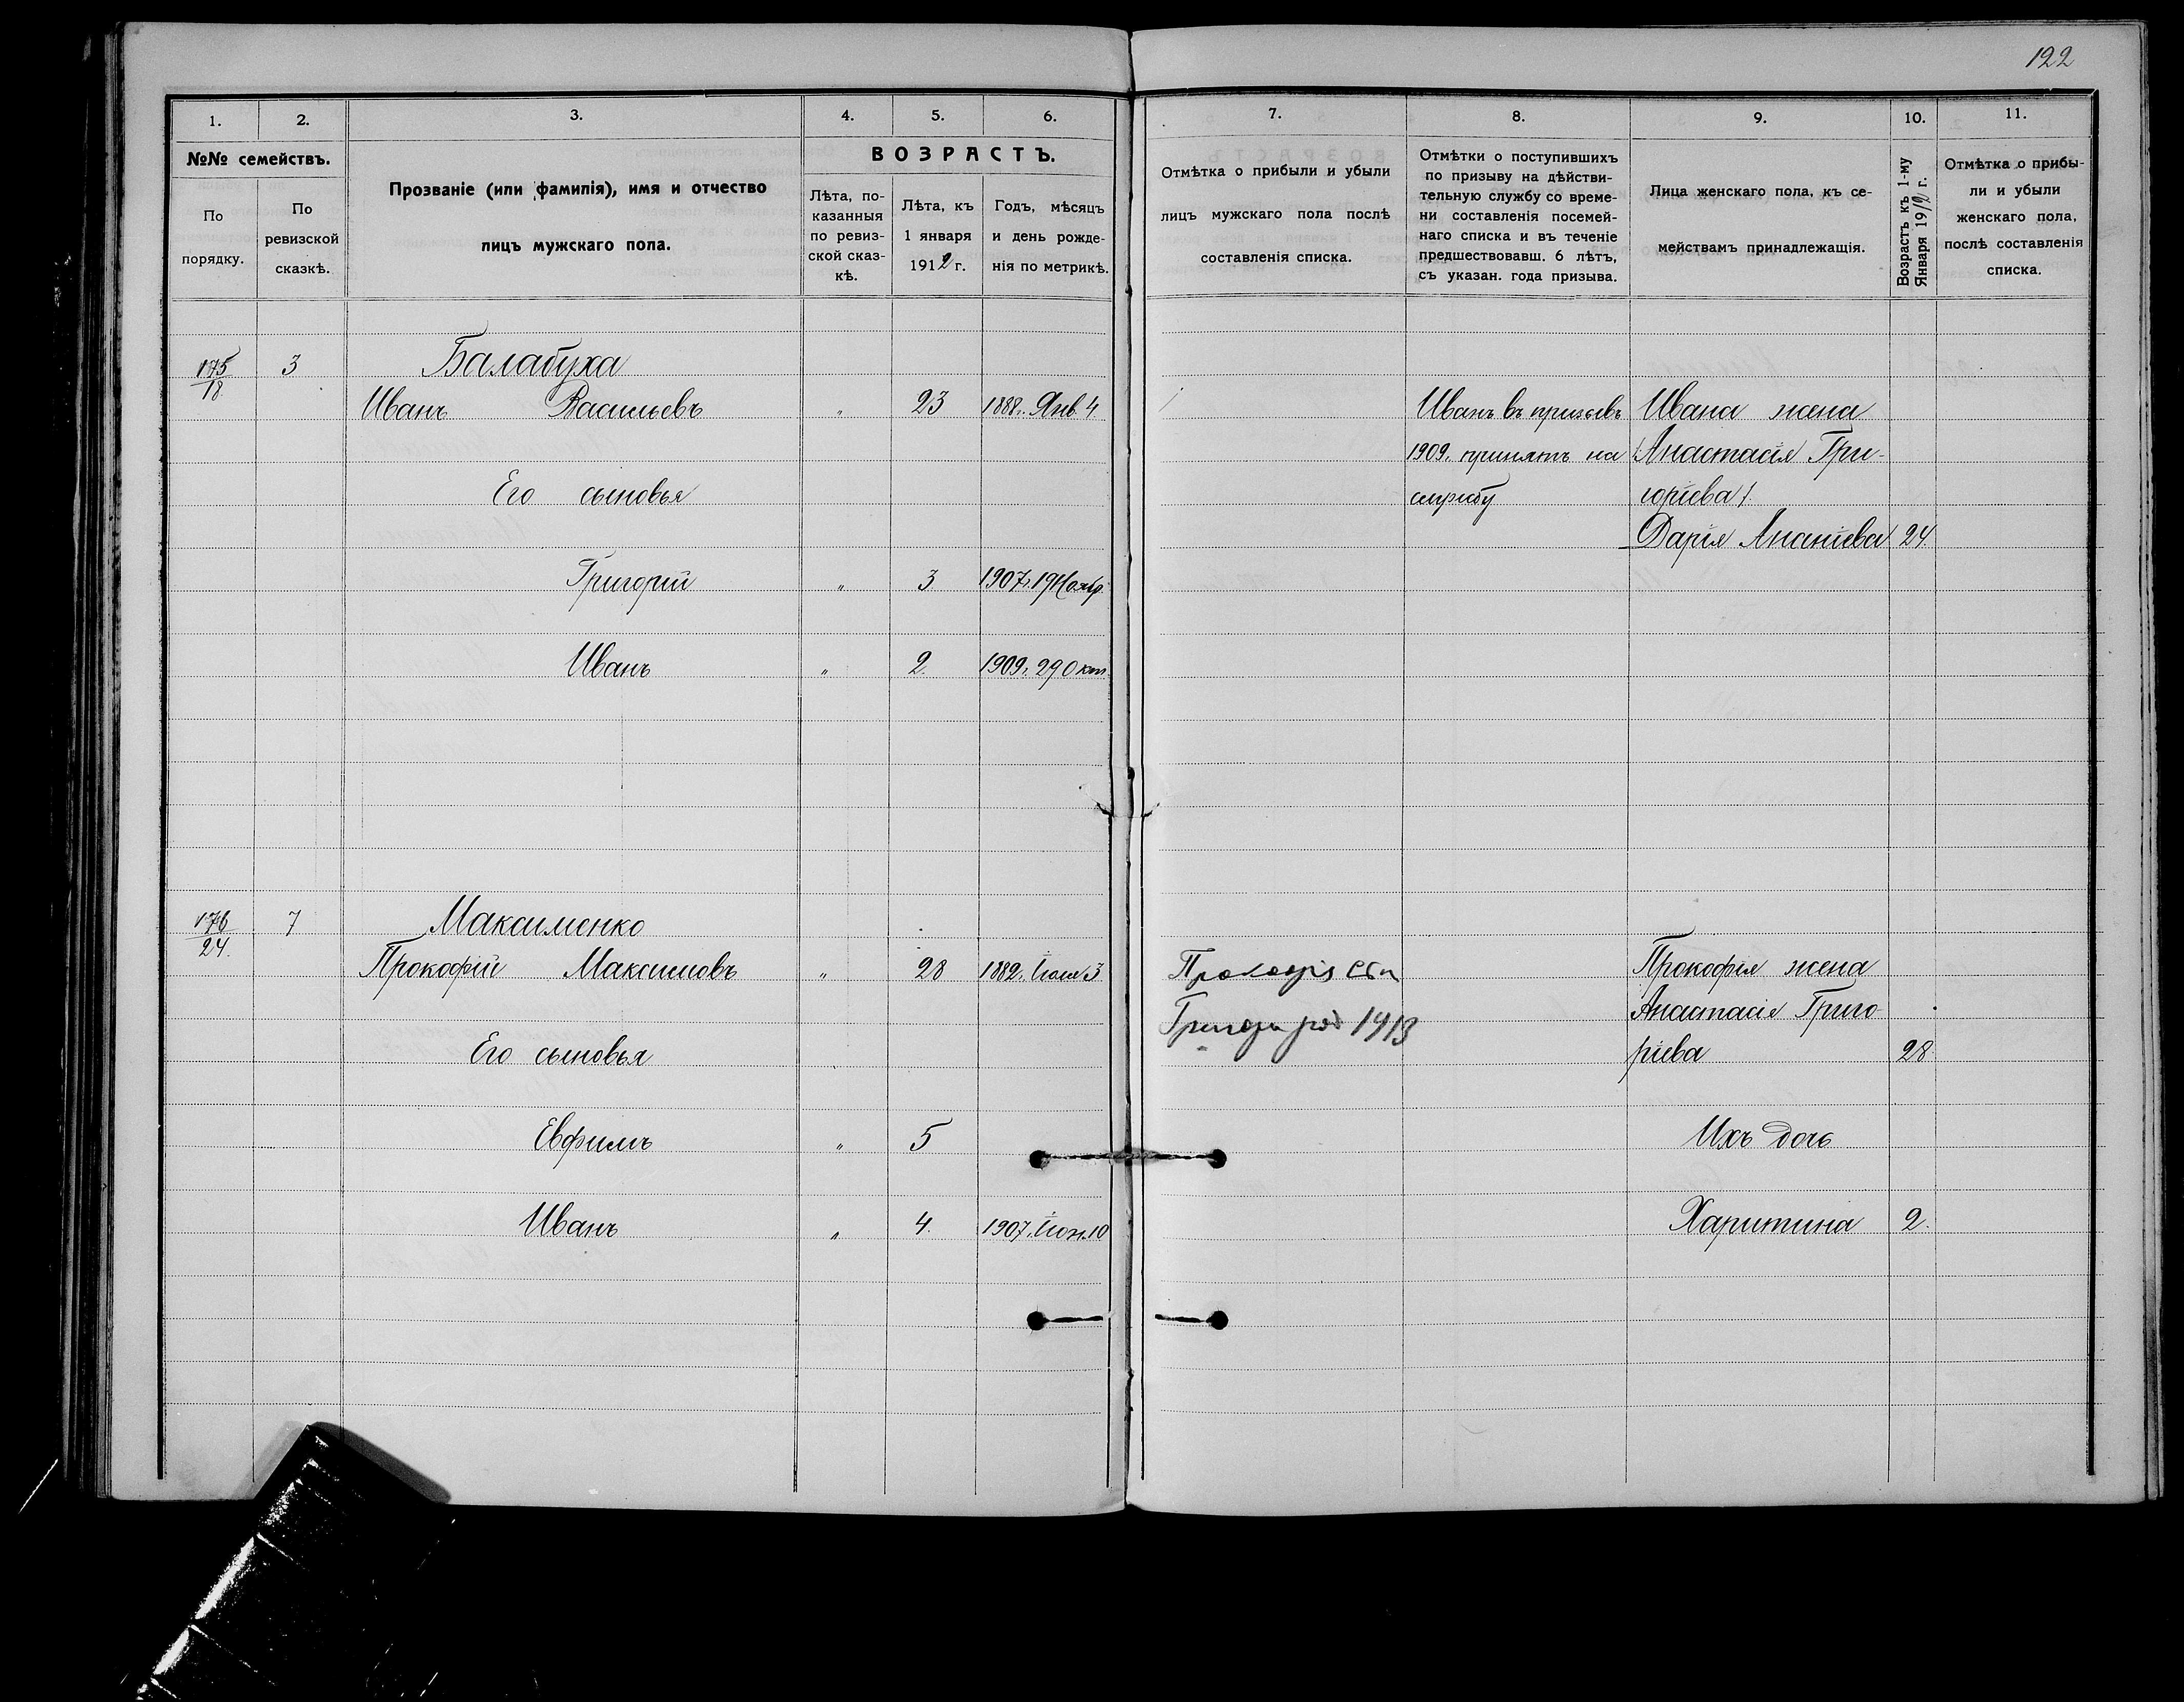 122
1. 2. 3. 4. 5. 6.
№№ семействъ.
По порядку.
По ревизской сказкѣ.
Прозваніе (или фамилія), имя и отчество
лицъ мужскаго пола.
ВОЗРАСТЪ.
Лѣта, по-
казанныя
по ревиз-
ской сказ-
кѣ.
Лѣта, къ
1 января
1912 г.
Годъ, мѣсяцъ
и день рожде-
нія по метрикѣ.
175/18 3 Балабуха
Иванъ Васильевъ " 23 1888. Янв. 4
Его сыновья
Григорій " 3 1907. 19 Ноябр.
Иванъ " 2. 1909. 29 Окт.
176/24. 7 Максименко
Прокофій Максимовъ " 28 1882. Іюля 3
Его сыновья
Евфимъ " 5
Иванъ " 4. 1907. Іюн. 10
7. 8. 9. 10. 11.
Отмѣтка о прибыли и убыли
лицъ мужскаго пола послѣ
составленія списка.
Отмѣтки о поступившихъ
по призыву на дѣйстви-
тельную службу со време-
ни составленія посемей-
наго списка и въ теченіе
предшествовавш. 6 лѣтъ,
съ указан. года призыва.
Лица женскаго пола, къ се-
мействамъ принадлежащія.
Возрастъ къ 1-му
Января 1912 г.
Отмѣтка о прибы-
ли и убыли
женскаго пола,
послѣ составленія
списка.
Иванъ въ призывъ
1909. принятъ на
службу
Ивана жена
Анастасія Гри-
горіева
Дарія Ананіева 24.
Прокофія
Григори 1913
Прокофія жена
Анастасія Григо-
ріева 28.
Ихъ дочь
Харитина 2.